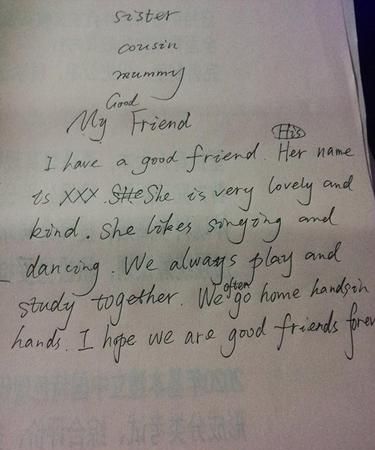 sister
cousin
mummy
Good
My Friend
His
I have a good friend. Her name
is XXX. She She is very lovely and
kind. She likes singing and
dancing. We always play and
study together. We often go home hands in
hands. I hope we are good friends forev